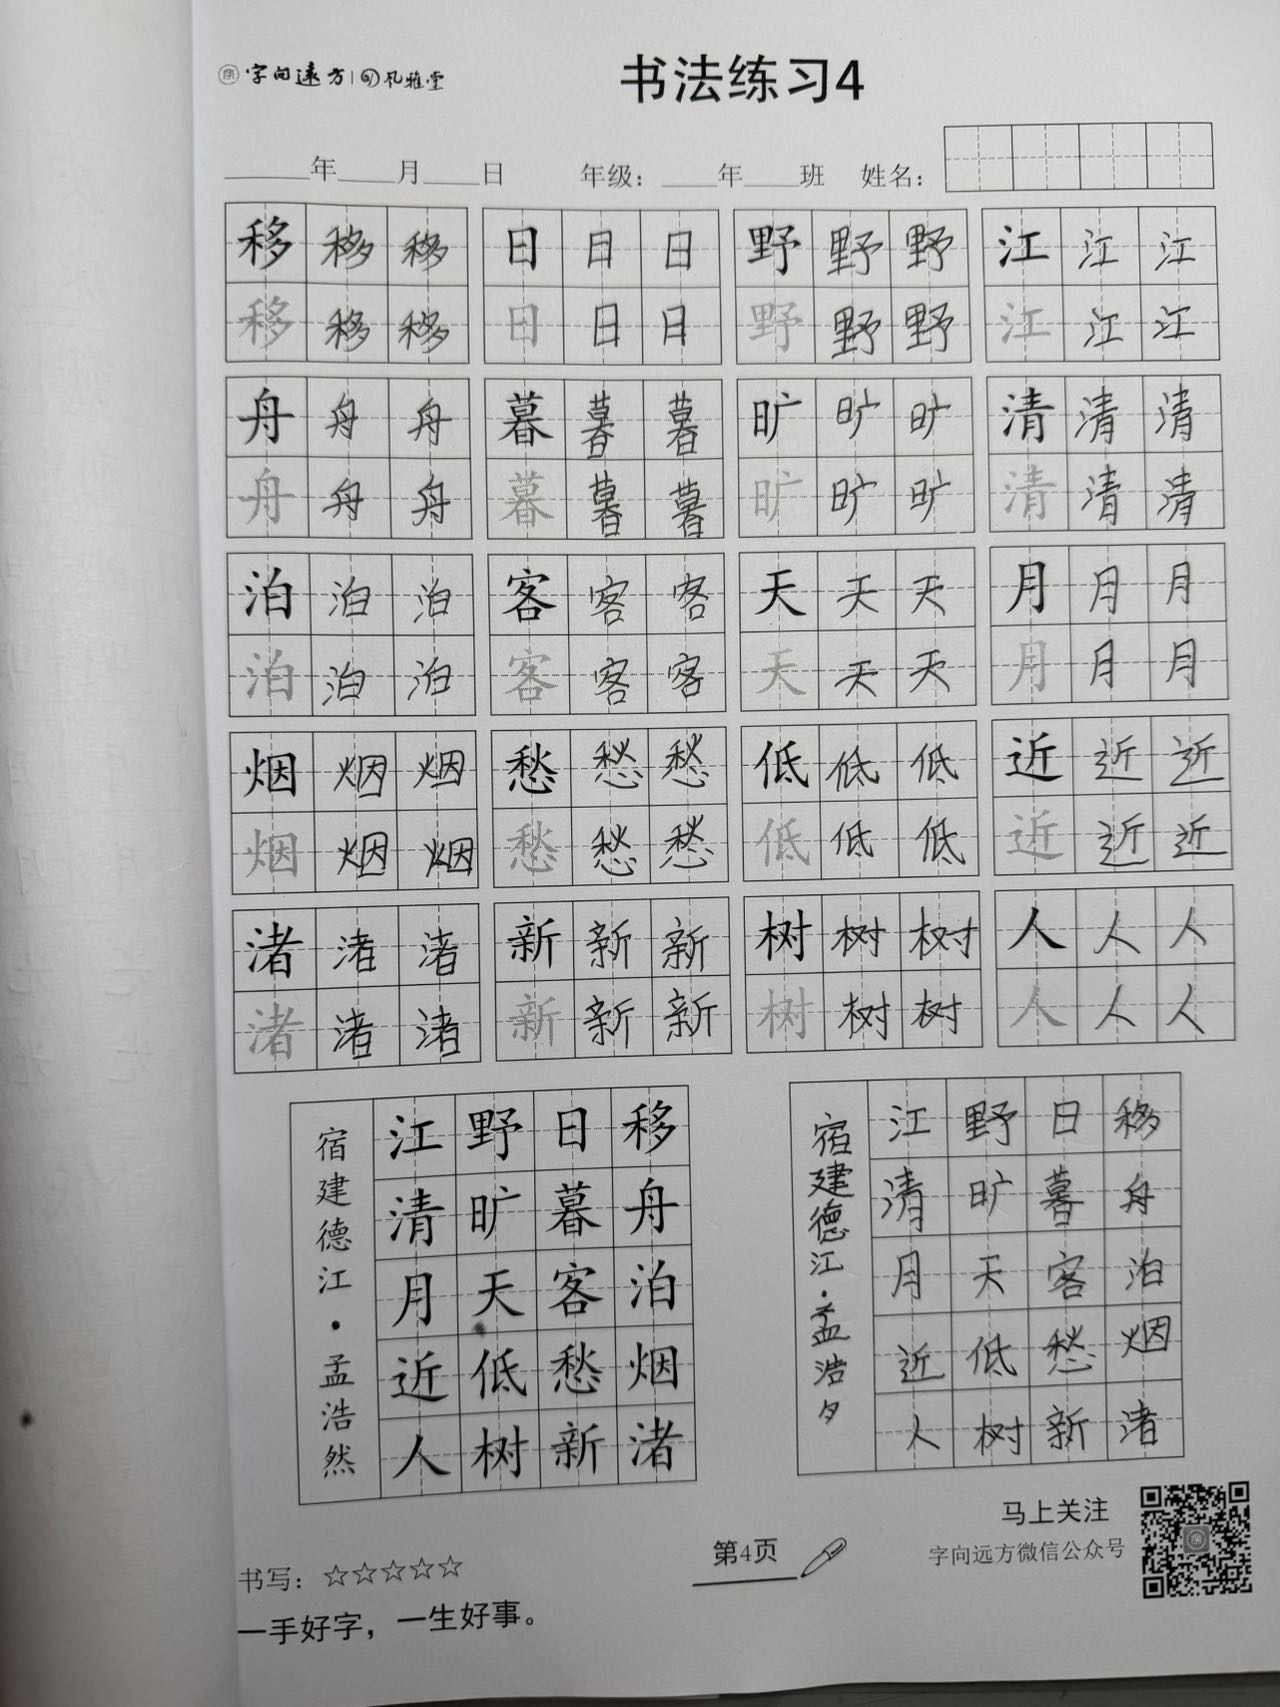 字向远方 孔雅堂
书法练习4
年 月 日 年级： 年 班 姓名：
移移移 日日日 野野野 江江江
移移移 日日日 野野野 江江江
舟舟舟 暮暮暮 旷旷旷 清清清
舟舟舟 暮暮暮 旷旷旷 清清清
泊泊泊 客客客 天天天 月月月
泊泊泊 客客客 天天天 月月月
烟烟烟 愁愁愁 低低低 近近近
烟烟烟 愁愁愁 低低低 近近近
渚渚渚 新新新 树树树 人人人
渚渚渚 新新新 树树树 人人人
移舟泊烟渚
日暮客愁新
野旷天低树
江清月近人
宿建德江·孟浩然
移舟泊烟渚
日暮客愁新
野旷天低树
江清月近人
宿建德江·孟浩夕
马上关注
字向远方微信公众号
第4页
书写：☆☆☆☆☆
一手好字，一生好事。